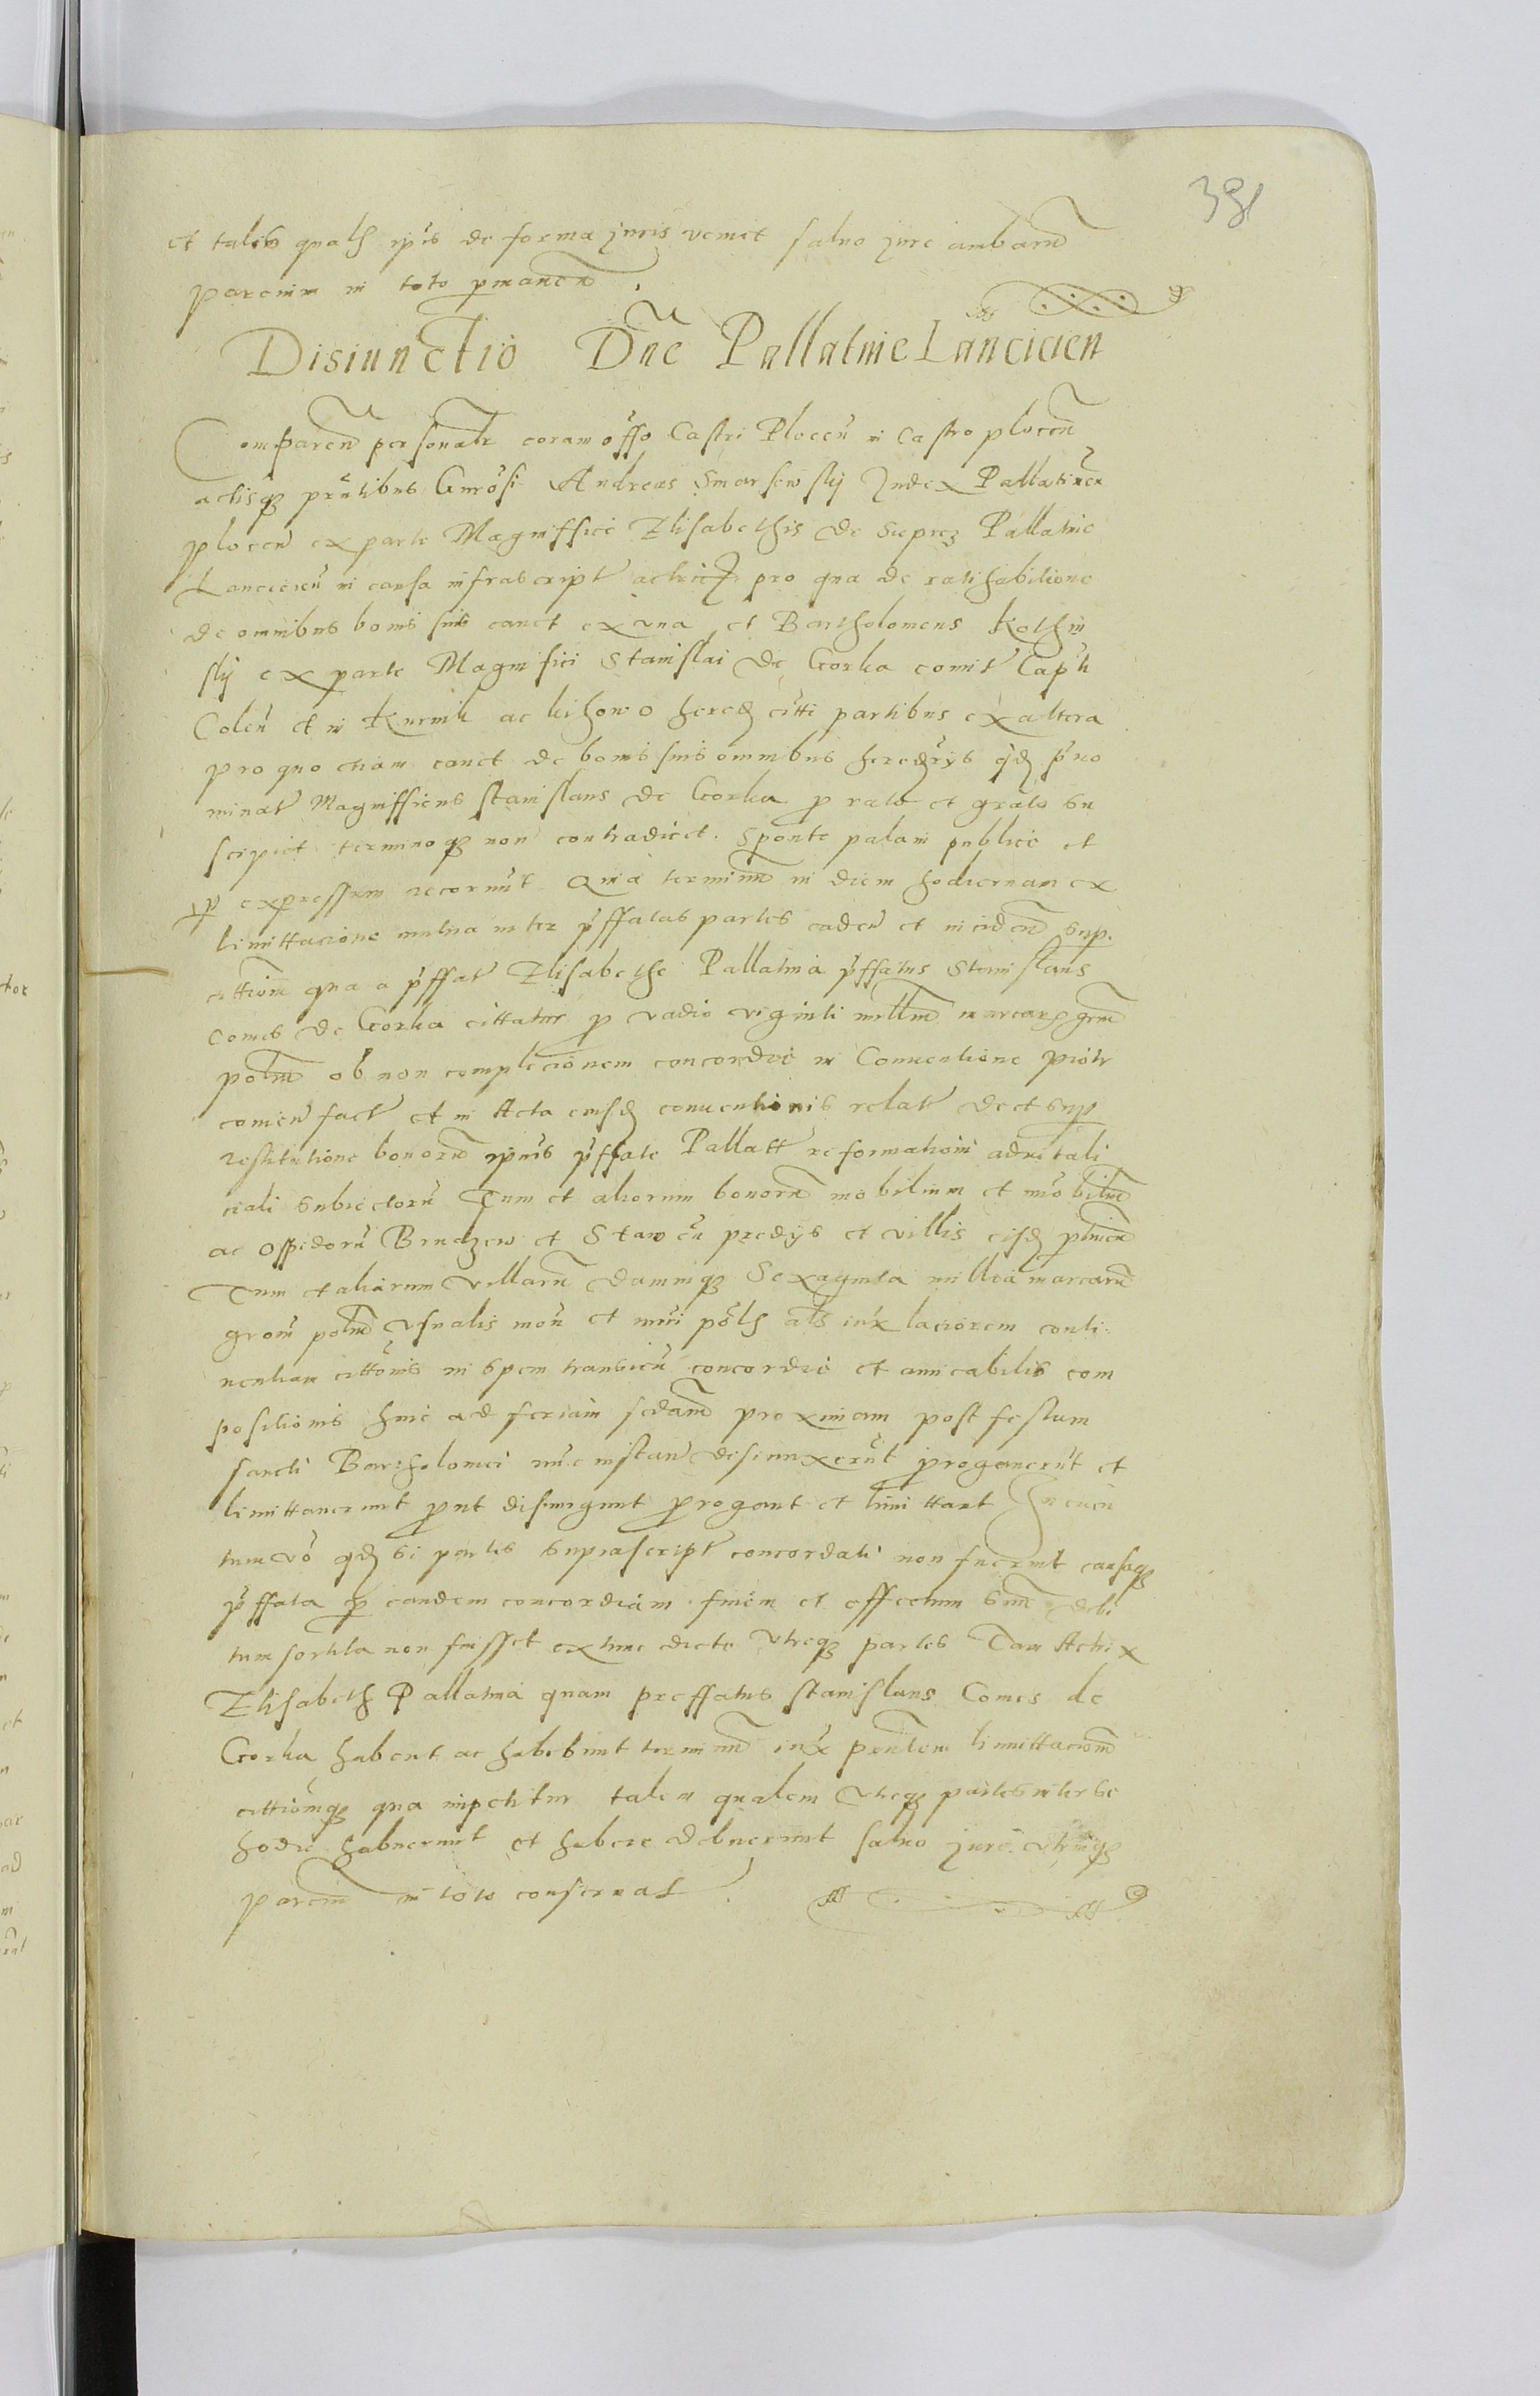 381
et talis qualis ipis de forma juris veniet salvo jure ambarū
parcium in toto permanen.
Disiunctio Dne Pallatinie Lancicien
Comparen personalr coram offo Castri Plocen in Castro plocen
actisq prntibus Gnrosi Andreas Smarsewskij Judex Pallatinen
plocen ex parte Magniffice Elisabethis de Sieprcz Pallatinie
Lancicien in causa infrascript actricis pro qua de ratihabitione
de omnibus bonis suis cauet ex vna et Bartholomeus Kothin
skij ex parte Magnifici Stanislai de Gorka comit Capti
Colen et in Kurnik ac kishowo hered citti partibus ex altera
pro quo etiam cauet de bonis suis omnibus heredrys qd pno
minat Magnifficus stanislaus de Gorka p rato et grato su
scipiet terminoq non contradicet. Sponte palam publice et
p expressum recornut Quia terminū in diem hodiernam ex
limittacione mutua inter pffatas partes caden et inciden sup.
cittiom qua a pffat Elisabethe Pallatinia pffatus Stanislaus
comes de Gorka cittatur p vadio viginti millm marcarū grm
polm ob non complecionem concordie in Conuentione piotr
comien fact et in Acta eiusd conuentionis relat de et sup
restitutione bonorū ipius pffate Pallatt reformationi aduitali
ciali subiectorū Tum et aliorum bonorū mobilium et imobiliū
ac oppidorū Brudzew et Stawen predys et villis eisd ptinen
Tum et aliarum villarū damnisq Sexaginta millia marcarū
grom polm vsualis mon et nūi pols als iux laciorem conti
nentiam cittonis in spem transien concordie et amicabilis com
positionis hinc ad feriam scdam proximam post festum
sancti Bartholomei nuc instan disiunxerūt progauerūt et
limittauerunt prout disiungunt prorogant et limittant In euen
tum vo qd si partes suprascript concordati non fuerint causaq
pffata p eandem concordiam finem et effectum suū debi
tum sortita non fuisset extunc dicte vtreq partes Tam Actrix
Elisabeth Pallatinia quam preffatus stanislaus Comes de
Gorka habent ac habebunt terminū iux prntem limittacionē
cittiomq qua impetitur talem qualem vtreq partes inter se
hodie habuerunt et habere debuerunt salvo jure utriusq
parciū in toto conseruat.